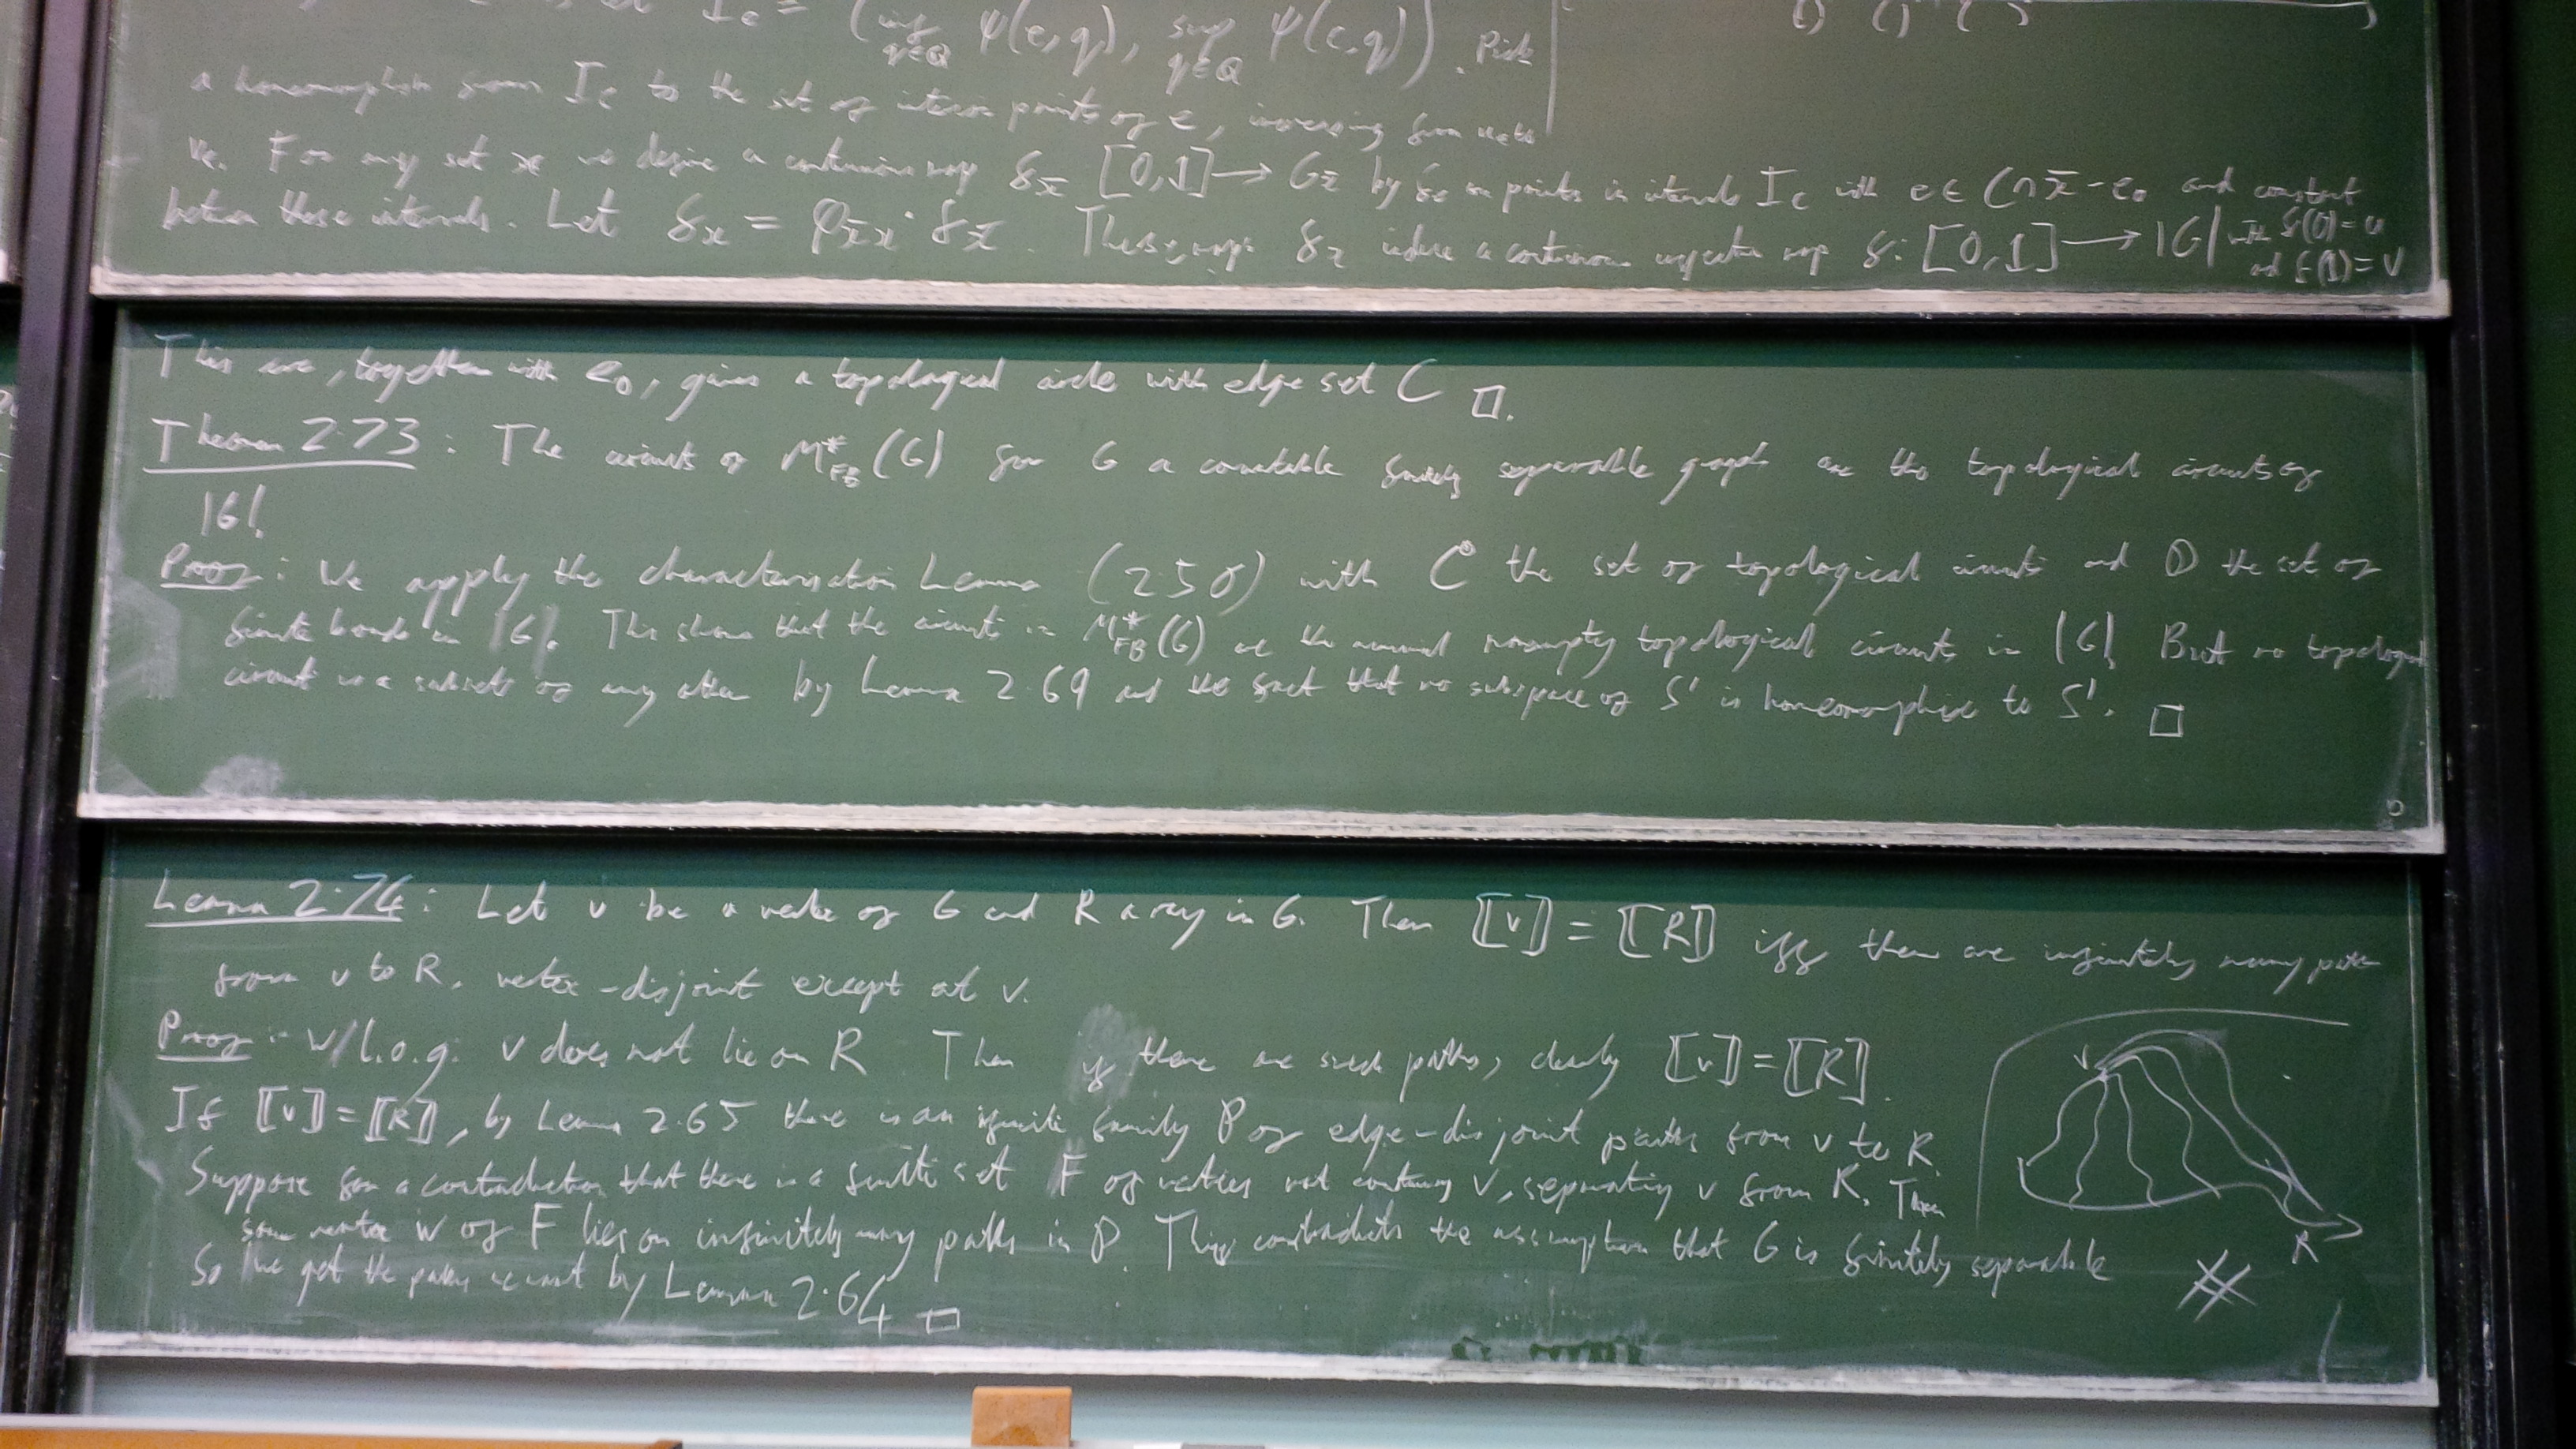 I_e = (inf_{q∈Q} ψ(e,q), sup_{q∈Q} ψ(e,q)). Pick
a homeomorphism from I_e to the set of interior points of e, increasing from u_e to
v_e. For any set x we define a continuous map f_x̄ [0,1] → G_x̄ by f_e on points in intervals I_e with e ∈ C∩x̄-e_0 and constant
between these intervals. Let f_x = φ_x̄x · f_x̄. These maps f_x induce a continuous injective map f: [0,1] → |G| with f(0)=u
and f(1)=v
This arc, together with e_0, gives a topological circle with edge set C □.
Theorem 2.73: The circuits of M*_FB(G) for G a countable finitely separable graph are the topological circuits of
|G|.
Proof: We apply the characterisation Lemma (2.50) with C the set of topological circuits and D the set of
finite bonds in |G|. This shows that the circuits in M*_FB(G) are the minimal nonempty topological circuits in |G|. But no topological
circuit is a subset of any other by Lemma 2.69 and the fact that no subspace of S' is homeomorphic to S'. □
Lemma 2.74: Let v be a vertex of G and R a ray in G. Then ⟦v⟧ = ⟦R⟧ iff there are infinitely many paths
from v to R, vertex-disjoint except at v.
Proof: W/l.o.g. v does not lie on R Then if there are such paths, clearly ⟦v⟧=⟦R⟧.
If ⟦v⟧=⟦R⟧, by Lemma 2.65 there is an infinite family P of edge-disjoint paths from v to R.
Suppose for a contradiction that there is a finite set F of vertices not containing v, separating v from R. Then
some vertex w of F lies on infinitely many paths in P. This contradicts the assumption that G is finitely separable
So we get the paths we want by Lemma 2.64 □
v
R